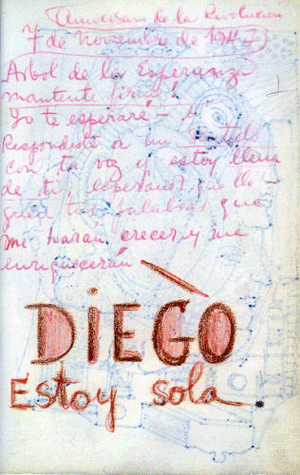 Aniversario de la Revolución
7 de Noviembre de 1947
Arbol de la Esperanza
mantente firme!
Yo te esperaré –
Respondiste a un sentido
con tu voz y estoy llena
de ti, esperando que lle-
guen tus palabras que
me harán crecer y me
enriquecerán
DIEGO
Estoy sola.